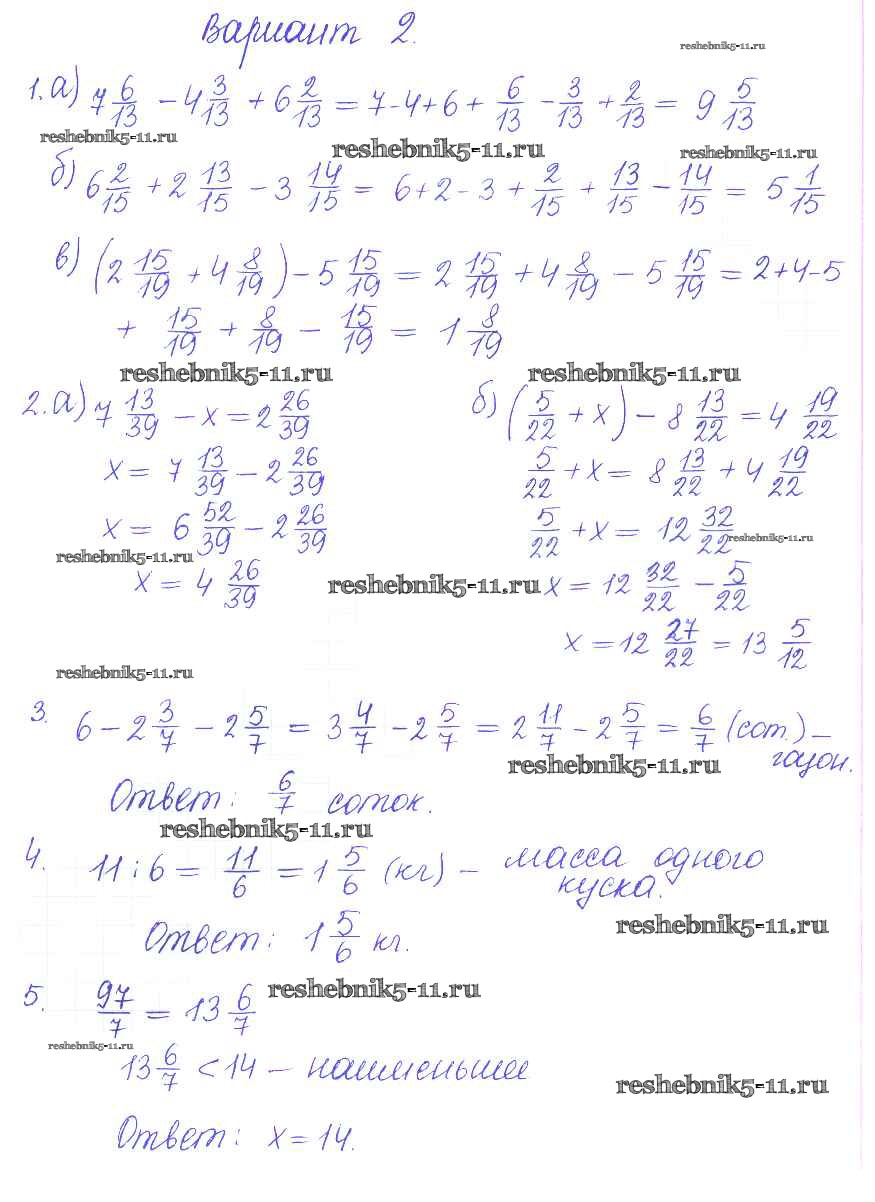 Вариант 2.
reshebnik5-11.ru
1. а) 7 6/13 - 4 3/13 + 6 2/13 = 7-4+6 + 6/13 - 3/13 + 2/13 = 9 5/13
reshebnik5-11.ru reshebnik5-11.ru reshebnik5-11.ru
б) 6 2/15 + 2 13/15 - 3 14/15 = 6+2-3 + 2/15 + 13/15 - 14/15 = 5 1/15
в) (2 15/19 + 4 8/19) - 5 15/19 = 2 15/19 + 4 8/19 - 5 15/19 = 2+4-5
+ 15/19 + 8/19 - 15/19 = 1 8/19
reshebnik5-11.ru reshebnik5-11.ru
2. а) 7 13/39 - x = 2 26/39
x = 7 13/39 - 2 26/39
x = 6 52/39 - 2 26/39
reshebnik5-11.ru
x = 4 26/39
б) (5/22 + x) - 8 13/22 = 4 19/22
5/22 + x = 8 13/22 + 4 19/22
5/22 + x = 12 32/22
reshebnik5-11.ru
reshebnik5-11.ru
x = 12 32/22 - 5/22
x = 12 27/22 = 13 5/12
reshebnik5-11.ru
3. 6 - 2 3/7 - 2 5/7 = 3 4/7 - 2 5/7 = 2 11/7 - 2 5/7 = 6/7 (сот.) -
газон.
reshebnik5-11.ru
Ответ: 6/7 соток.
reshebnik5-11.ru
4. 11 : 6 = 11/6 = 1 5/6 (кг) - масса одного
куска.
reshebnik5-11.ru
Ответ: 1 5/6 кг.
reshebnik5-11.ru
5. 97/7 = 13 6/7
reshebnik5-11.ru
13 6/7 < 14 - наименьшее
reshebnik5-11.ru
Ответ: x = 14.